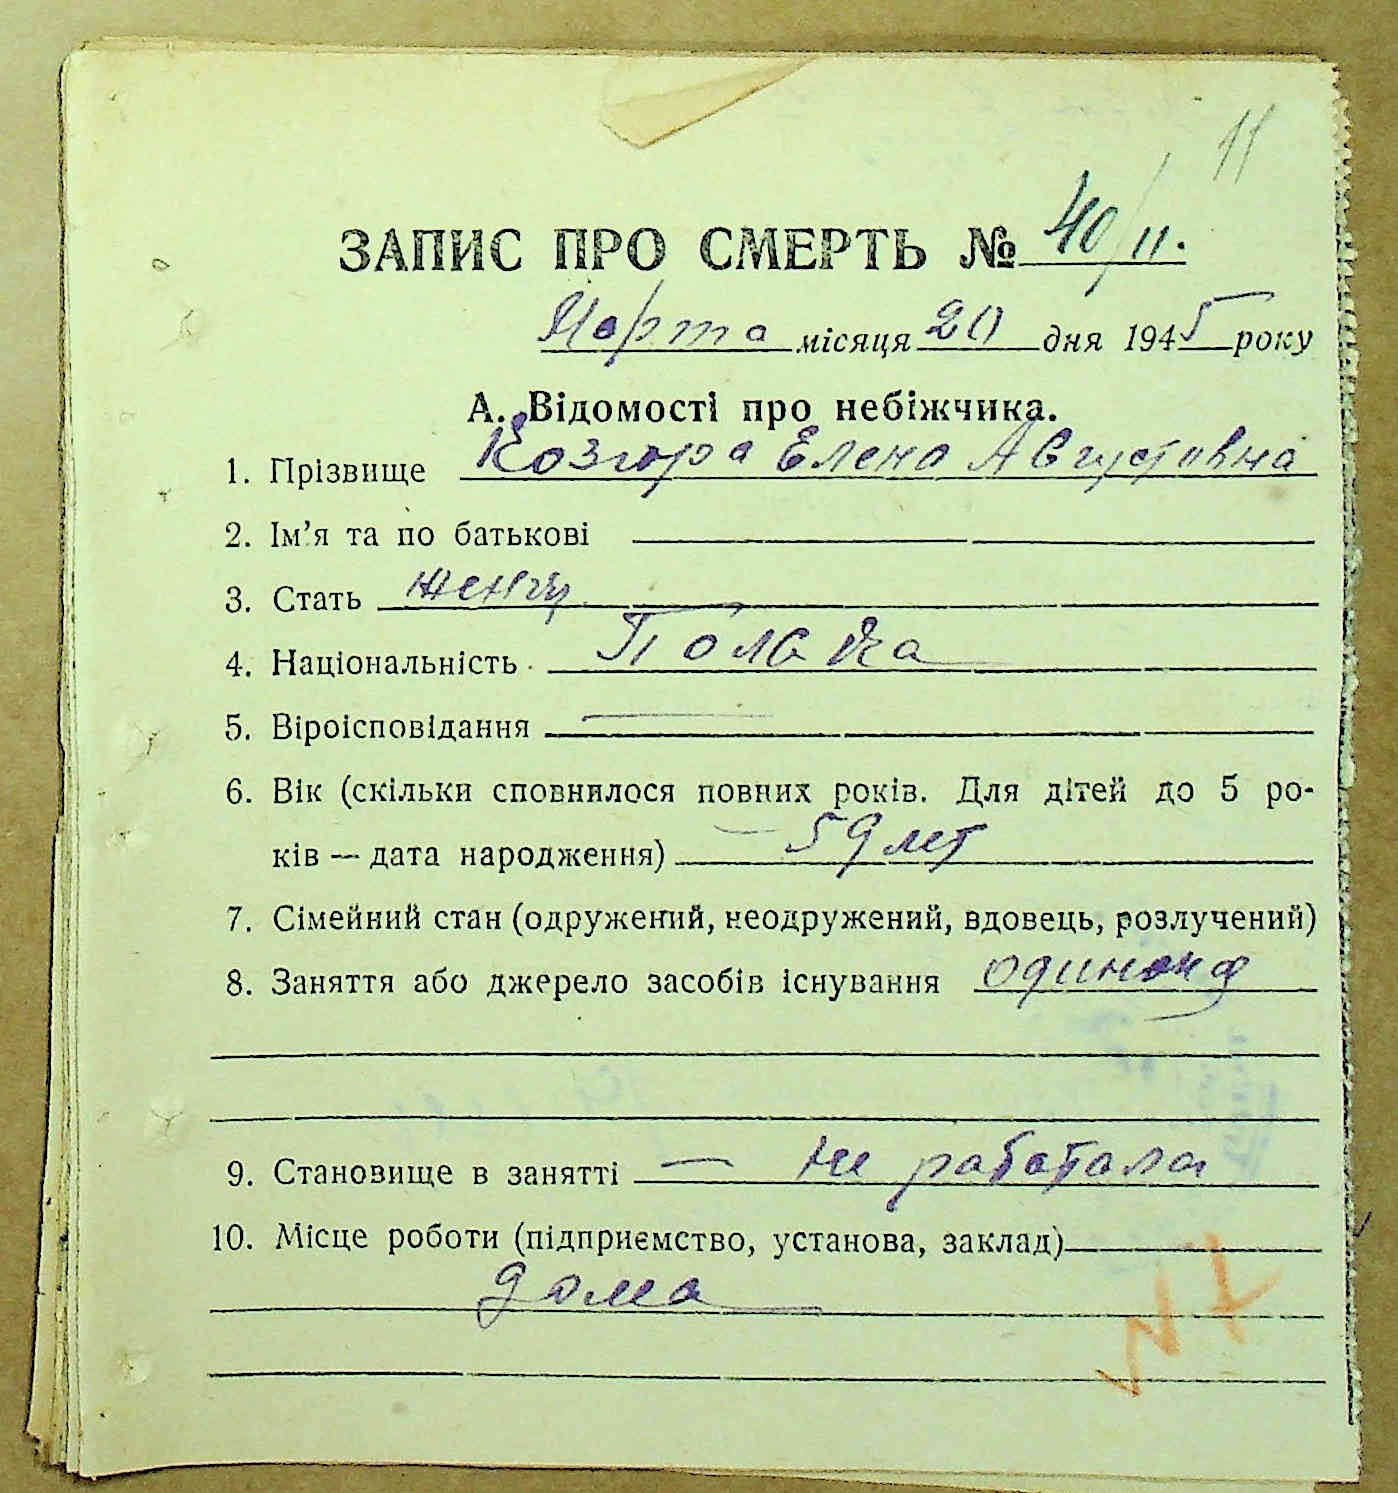 11
ЗАПИС ПРО СМЕРТЬ № 40/11.
Марта місяця 20 дня 1945 року
А. Відомості про небіжчика.
1. Прізвище Козюра Елена Августивна
2. Ім’я та по батькові
3. Стать женщ
4. Національність Полячка
5. Віроісповідання —
6. Вік (скільки сповнилося повних років. Для дітей до 5 ро-
ків — дата народження) — 59 лет
7. Сімейний стан (одружений, неодружений, вдовець, розлучений)
8. Заняття або джерело засобів існування одинока
9. Становище в занятті — не работала
10. Місце роботи (підприємство, установа, заклад)
дома